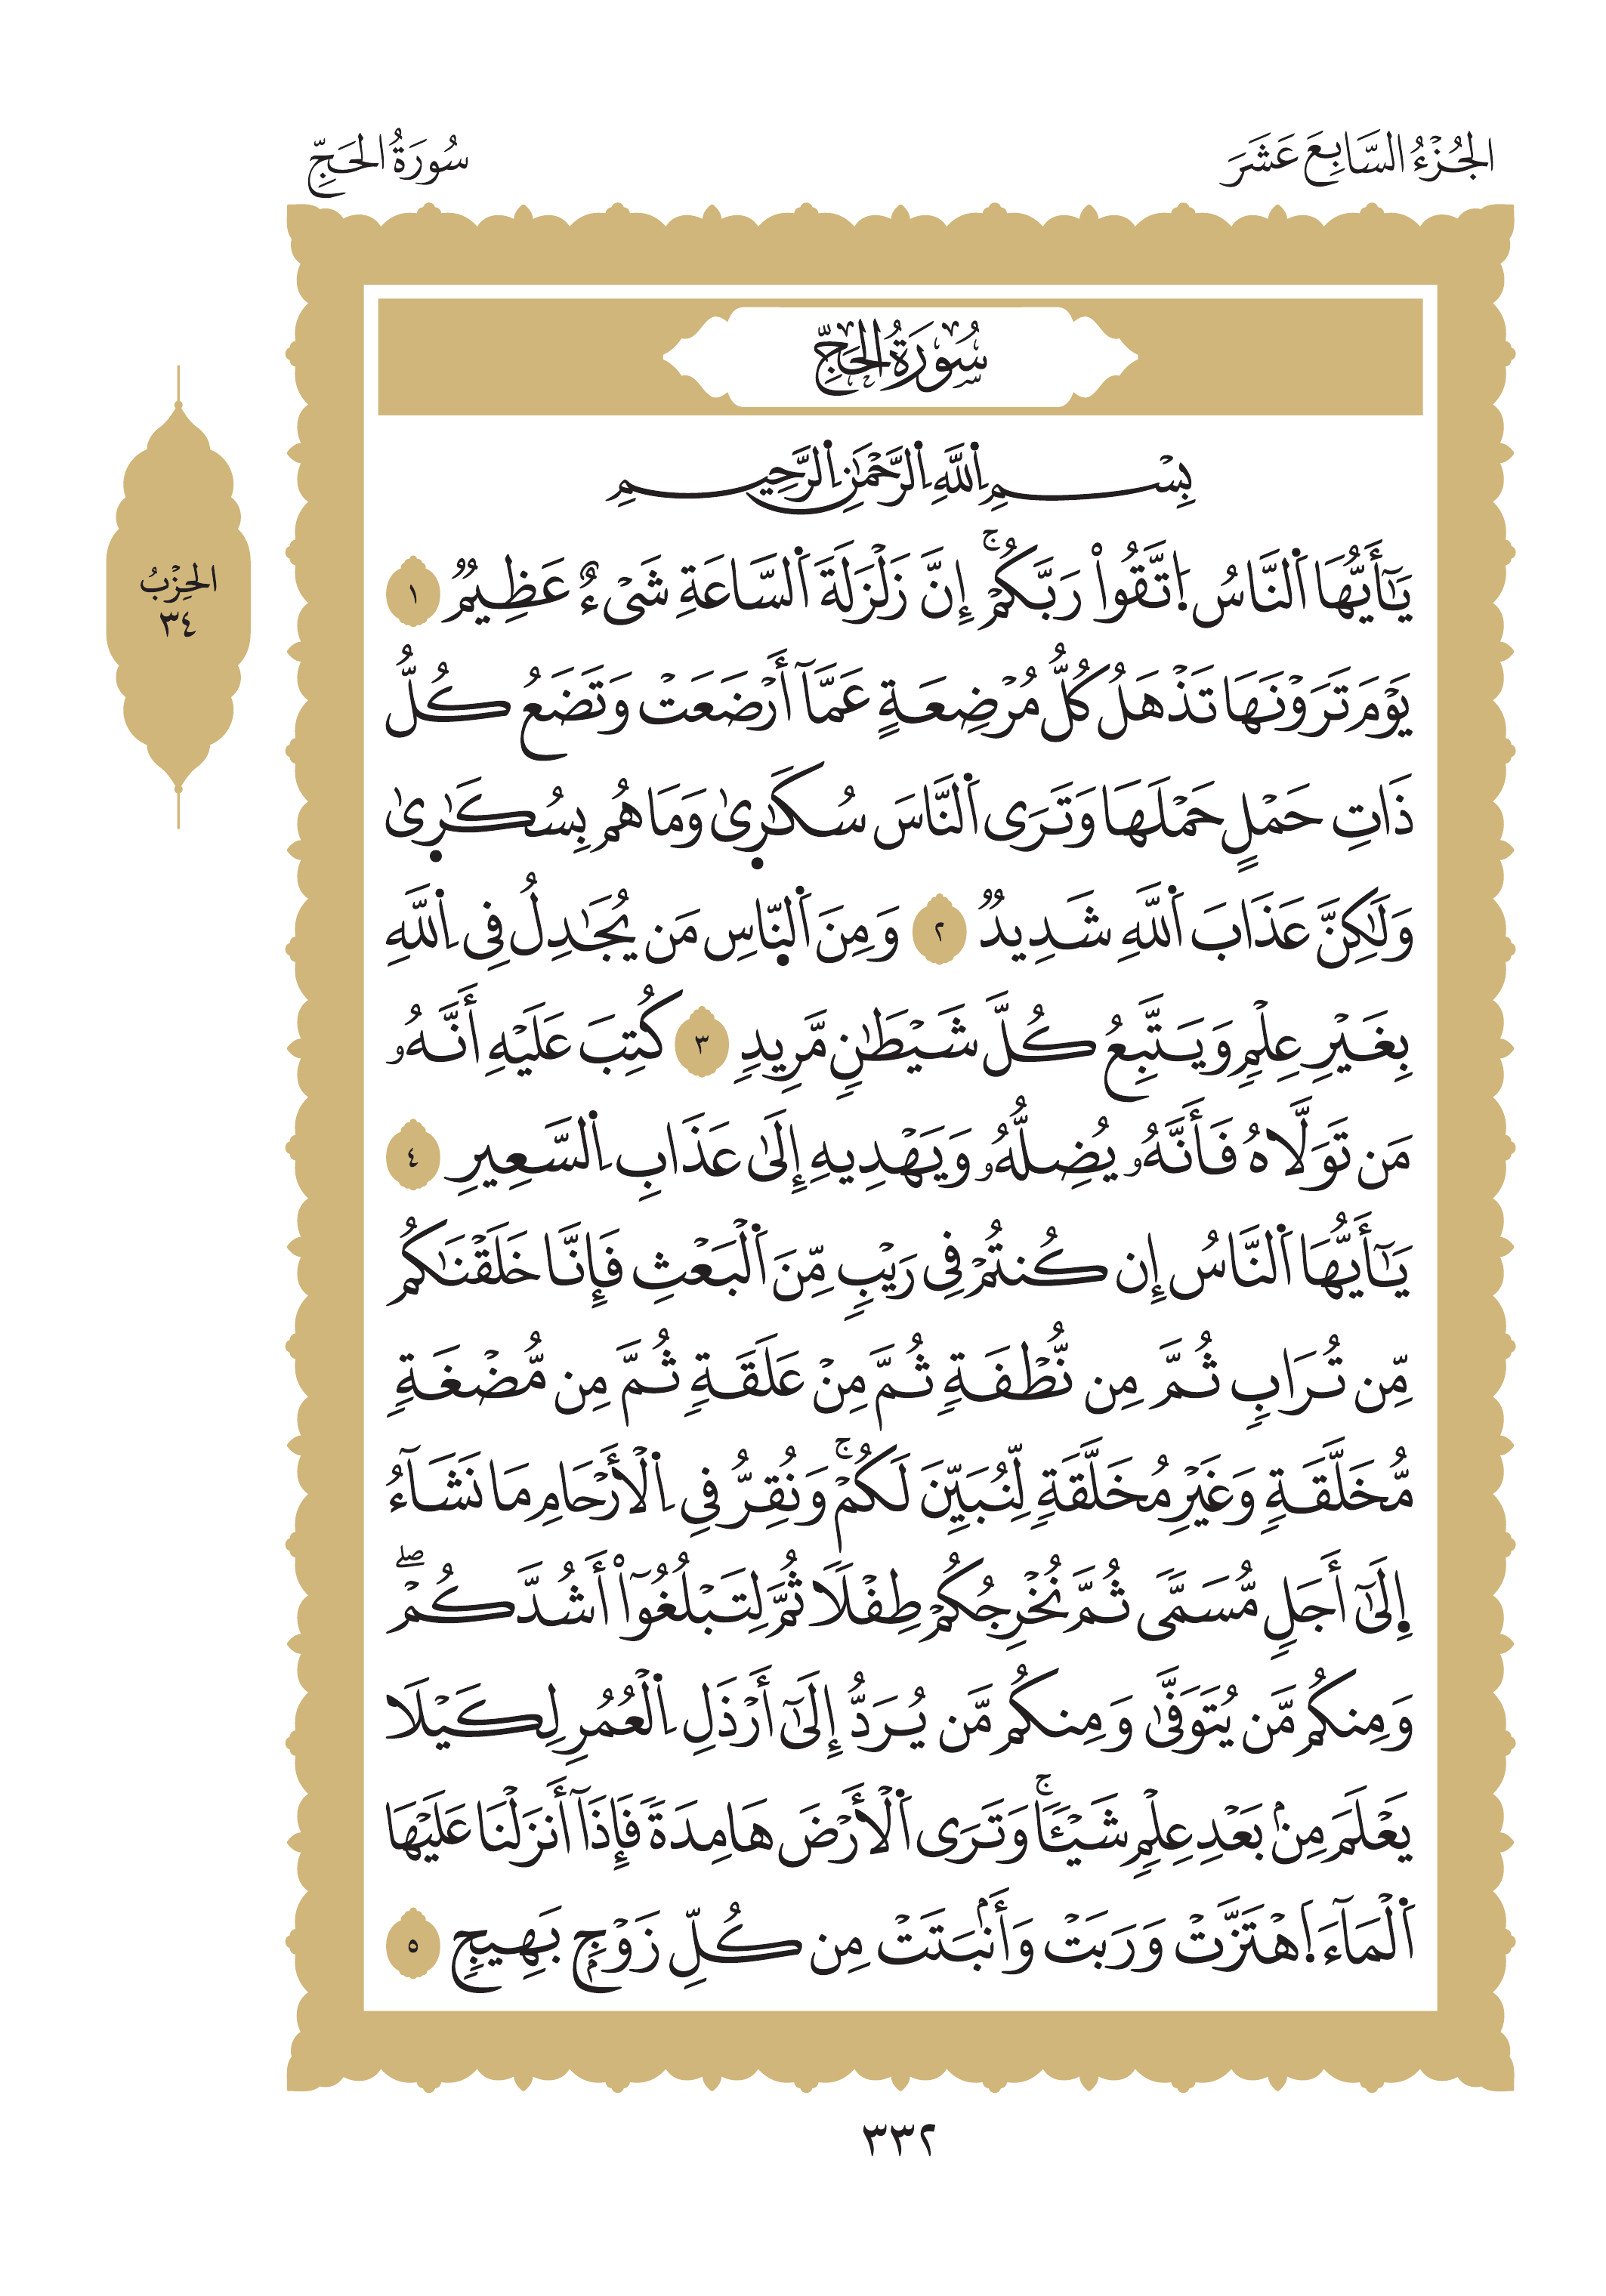 الجُزْءُ السَّابِعَ عَشَرَ
سُورَةُ الحَجِّ
سُورَةُ الحَجِّ
بِسْمِ اِ۬للَّهِ اِ۬لرَّحْمَٰنِ اِ۬لرَّحِيمِ
يَٰٓأَيُّهَا اَ۬لنَّاسُ اُ۪تَّقُواْ رَبَّكُمْۚ إِنَّ زَلْزَلَةَ اَ۬لسَّاعَةِ شَيْءٌ عَظِيمٞ ١
يَوْمَ تَرَوْنَهَا تَذْهَلُ كُلُّ مُرْضِعَةٍ عَمَّآ أَرْضَعَتْ وَتَضَعُ كُلُّ
ذَاتِ حَمْلٍ حَمْلَهَا وَتَرَى اَ۬لنَّاسَ سُكَٰرٜىٰ وَمَا هُم بِسُكَٰرٜىٰ
وَلَٰكِنَّ عَذَابَ اَ۬للَّهِ شَدِيدٞ ٢ وَمِنَ اَ۬لنّٜاسِ مَن يُجَٰدِلُ فِي اِ۬للَّهِ
بِغَيْرِ عِلْمٖ وَيَتَّبِعُ كُلَّ شَيْطَٰنٖ مَّرِيدٖ ٣ كُتِبَ عَلَيْهِ أَنَّهُۥ
مَن تَوَلَّاهُ فَأَنَّهُۥ يُضِلُّهُۥ وَيَهْدِيهِ إِلَىٰ عَذَابِ اِ۬لسَّعِيرِ ٤
يَٰٓأَيُّهَا اَ۬لنَّاسُ إِن كُنتُمْ فِي رَيْبٖ مِّنَ اَ۬لْبَعْثِ فَإِنَّا خَلَقْنَٰكُم
مِّن تُرَابٖ ثُمَّ مِن نُّطْفَةٖ ثُمَّ مِنْ عَلَقَةٖ ثُمَّ مِن مُّضْغَةٖ
مُّخَلَّقَةٖ وَغَيْرِ مُخَلَّقَةٖ لِّنُبَيِّنَ لَكُمْۚ وَنُقِرُّ فِي اِ۬لْأَرْحَامِ مَا نَشَآءُ
اِ۪لَىٰٓ أَجَلٖ مُّسَمّٗى ثُمَّ نُخْرِجُكُمْ طِفْلٗا ثُمَّ لِتَبْلُغُوٓاْ أَشُدَّكُمْۖ
وَمِنكُم مَّن يُتَوَفَّىٰ وَمِنكُم مَّن يُرَدُّ إِلَىٰٓ أَرْذَلِ اِ۬لْعُمُرِ لِكَيْلَا
يَعْلَمَ مِنۢ بَعْدِ عِلْمٖ شَيْـٔٗاۚ وَتَرَى اَ۬لْأَرْضَ هَامِدَةٗ فَإِذَآ أَنزَلْنَا عَلَيْهَا
اَ۬لْمَآءَ اَ۪هْتَزَّتْ وَرَبَتْ وَأَنۢبَتَتْ مِن كُلِّ زَوْجِۭ بَهِيجٖ ٥
الحِزْبُ
٣٤
٣٣٢